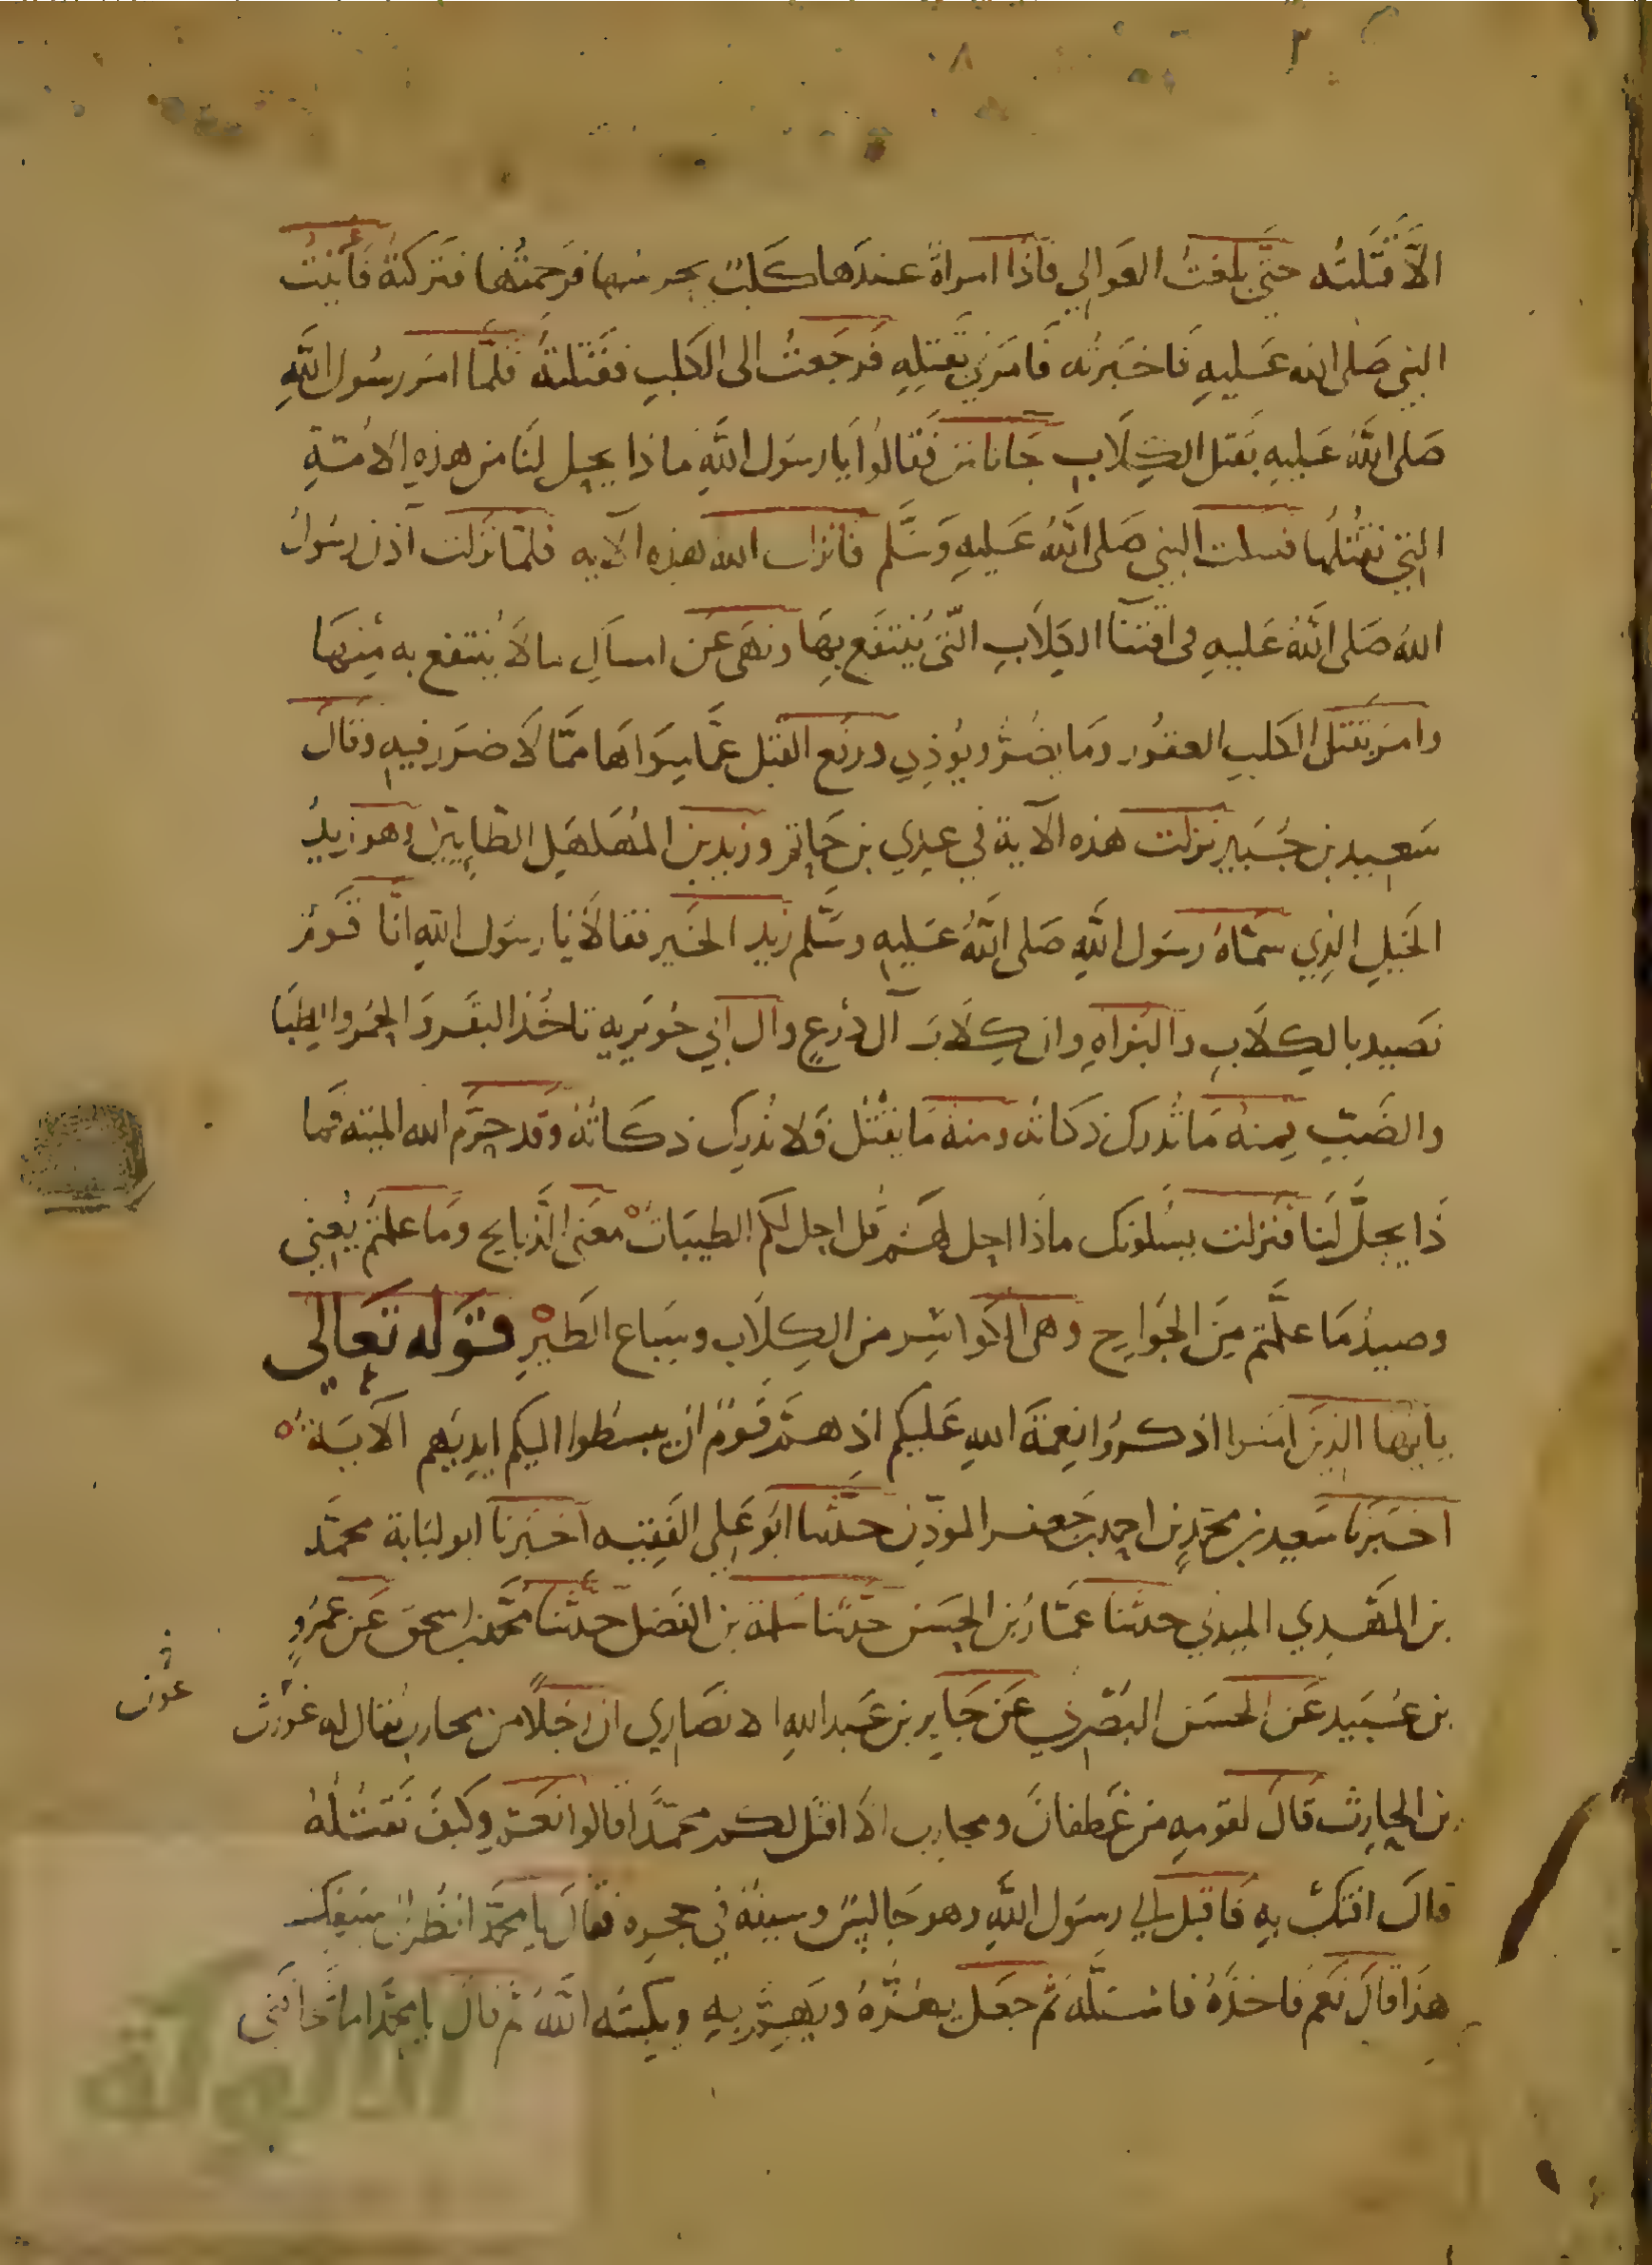 الّا قتلته حتى بلغتُ العوالي فاذا امراة عندها كلب يحرسها فرحمتُها فتركته فاتيتُ
النبي صلى الله عليه فاخبرته فامرني بقتله فرجعتُ الى الكلب فقتلتهُ فلمّا امر رسُول الله
صلى اللهُ عليه بقتل الكِلَاب جا ناس فقالُوا يا رسول اللهِ ماذا يحل لنا من هذهِ الامّة
التي نقتُلُها فسكت النبي صلى اللهُ عليهِ وسَلّم فانزل الله هذه الآيه فلما نزلت آذن رسُول
الله صَلى اللهُ عَليهِ في اقتنا الكِلَابِ التّي يُنتفع بهَا ونهَى عَن امساكِ ما لَا يُنتفع به مِنهَا
وامر بقتل الكلبِ العقُور ومَا يضُرُّ ويُؤذِي ورفع القتل عمّا سِوَاهَا ممّا لَا ضرَر فيهِ وقال
سَعِيد بن جُبَيرٍ نزلت هذه الآية في عدِي بن حَاتم وزيد بن المُهَلهَل الطايِيّين وهو زيدُ
الخيل الذِي سمّاهُ رسُول اللهِ صَلى اللهُ عَليهِ وسَلّم زيد الخَير فقالَا يا رسُول اللهِ انّا قوم
نصِيد بالكِلَابِ والبُزاهِ وان كِلَابَ آل درعٍ وآل ابي حُويريه تاخُذ البقَر وَالحمُر والظِبَا
والضَبّ فمِنهُ مَا نُدرك ذكاته ومنهُ مَا يقتُل فلا نُدرِك ذكاتهُ وقد حرّم الله الميته فما
ذَا يحلُّ لنَا فنزلت يسئلونك ماذَا احل لهُم قل احل لكم الطيبَات معنى الذبايح ومَا علمتُم يعني
وصيدُ مَا علمتم مِن الجوارِح وهى الكواسِر من الكِلَاب وسِبَاع الطَيرِ قوله تعالى
يايُّها الذين امنوا اذكرُوا نِعمَة اللهِ عَليكم اذ همّ قَومٌ ان يبسطوا اليكم ايدِيَهم الآية
اخبَرنا سَعيد بن محمّد بن احمد بن جعفر الموذِن حدّثنا ابو عَلي الفَقِيه اخبَرنا ابو لبَابة محمّد
بن المهدِي الميدِني حدثنا عمّارُ بن الحسَن حدّثنا سَلمة بن الفضل حدّثنا محمّد بن اسحق عَن عمرو
بن عُبَيد عَن الحسَن البَصْرِي عَن جَابِر بن عَبدالله الانصَاري ان رجُلًا من محارب يقال له غورث
عورث
بن الحارِث قالَ لقومهِ من غَطفانَ ومحارِب الا اقتل لكم محمّدًا قالوا نعَم وكيفَ تقتُلُهُ
قالَ افتك بهِ فاقبل الى رسُول اللهِ وهو جَالِسٌ وسيفهُ في حجرِه فقالَ يا محمّد انظر الى سَيفك
هذَا قالَ نعَم فاخذَهُ فاستلّه ثم جعَل يهُزّهُ ويهمُّ بهِ ويكبته اللهُ ثم قالَ يا محمّد اما تخافني
الألوكة